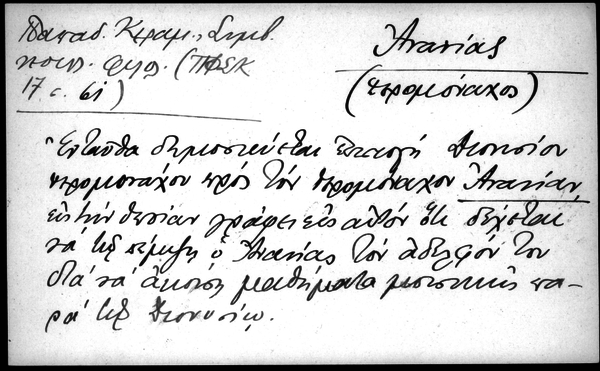 Παπαδ. Κεραμ., Συμβ.
κοιν. φιλ. (ΠΦΣΚ
17 σ. 61)
Ἀνανίας
(ἱερομόναχος)
Ἐνταῦθα δημοσιεύεται ἐπιστολὴ Διονυσίου
ἱερομονάχου πρὸς τὸν ἱερομόναχον Ἀνανίαν,
εἰς τὴν ὁποίαν γράφει εἰς αὐτὸν ὅτι δέχεται
νὰ τοῦ πέμψῃ ὁ Ἀνανίας τὸν ἀδελφόν του
διὰ νὰ ἀκούσῃ μαθήματα μουσικῆς πα-
ρὰ τοῦ Διονυσίου.